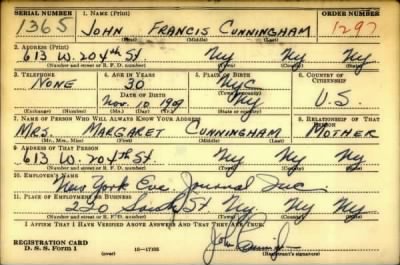 SERIAL NUMBER 1. NAME (Print) ORDER NUMBER
1365 JOHN FRANCIS CUNNINGHAM 1297
(First) (Middle) (Last)
2. ADDRESS (Print)
613 W. 204th St. Ny Ny Ny
(Number and street or R. F. D. number) (Town) (County) (State)
3. TELEPHONE 4. AGE IN YEARS 5. PLACE OF BIRTH 6. COUNTRY OF CITIZENSHIP
NONE 30 NYC
DATE OF BIRTH (Town or county)
Nov. 10 1909 Ny U.S.
(Exchange) (Number) (Mo.) (Day) (Yr.) (State or country)
7. NAME OF PERSON WHO WILL ALWAYS KNOW YOUR ADDRESS 8. RELATIONSHIP OF THAT PERSON
MRS. MARGARET CUNNINGHAM MOTHER
(Mr., Mrs., Miss) (First) (Middle) (Last)
9. ADDRESS OF THAT PERSON
613 W. 204th St. Ny Ny Ny
(Number and street or R. F. D. number) (Town) (County) (State)
10. EMPLOYER'S NAME
New York Eve. Journal Inc.
11. PLACE OF EMPLOYMENT OR BUSINESS
220 South St Ny Ny Ny
(Number and street or R. F. D. number) (Town) (County) (State)
I AFFIRM THAT I HAVE VERIFIED ABOVE ANSWERS AND THAT THEY ARE TRUE.
REGISTRATION CARD John Cunningham
D. S. S. Form 1 (over) 16-17105 (Registrant's signature)